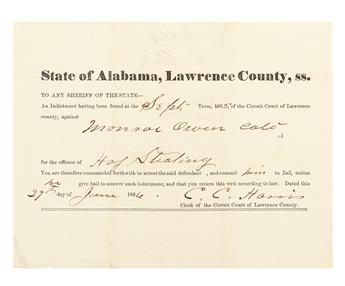 State of Alabama, Lawrence County, ss.
TO ANY SHERIFF OF THE STATE—
An Indictment having been found at the Sept Term, 1865, of the Circuit Court of Lawrence
county, against
Monroe Owen Cold
for the offence of Hog Stealing
You are therefore commanded forthwith to arrest the said defendant, and commit him to Jail, unless
he give bail to answer such indictment; and that you return this writ according to law. Dated this
29th day of June 1866. C. C. Harris
Clerk of the Circuit Court of Lawrence County.